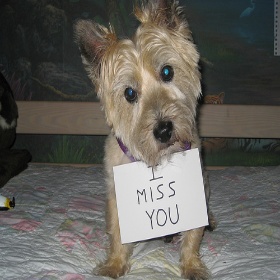 I
MISS
YOU